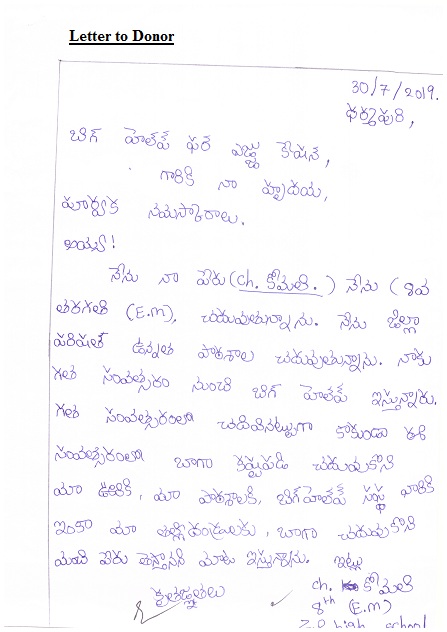 Letter to Donor
30/7/2019.
ధర్మపురి,
బిగ్ హెల్ప్ ఫర్ ఎడ్యు కేషన్,
గారికి నా హృదయ,
పూర్వక నమస్కారాలు.
అయ్యా!
నేను నా పేరు (ch. కోమలి.) నేను (8వ
తరగతి (E.M). చదువుతున్నాను. నేను జిల్లా
పరిషత్ ఉన్నత పాఠశాల చదువుతున్నాను. నాకు
గత సంవత్సరం నుంచి బిగ్ హెల్ప్ ఇస్తున్నారు.
గత సంవత్సరంలా చదివినట్టుగా కాకుండా ఈ
సంవత్సరంలా బాగా కష్టపడి చదువుకొని
మా ఊరికి, మా పాఠశాలకి, బిగ్ హెల్ప్ సంస్థ వారికి
ఇంకా మా తల్లిదండ్రులకు, బాగా చదువుకొని
మంచి పేరు తెస్తానని మాట ఇస్తున్నాను. ఇట్లు
కృతజ్ఞతలు
ch. కోమలి
8th (E.M)
Z.P high school